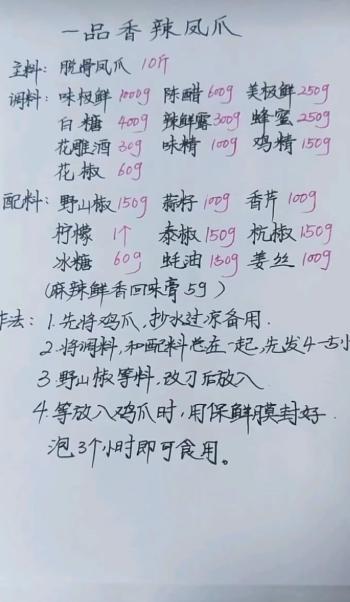 一品香辣凤爪
主料: 脱骨凤爪 10斤
调料: 味极鲜 1000g 陈醋 600g 美极鲜 250g
白糖 400g 辣鲜露 300g 蜂蜜 250g
花雕酒 30g 味精 100g 鸡精 150g
花椒 60g
配料: 野山椒 150g 蒜籽 100g 香芹 100g
柠檬 1个 泰椒 150g 杭椒 150g
冰糖 60g 蚝油 150g 姜丝 100g
(麻辣鲜香回味膏 5g)
作法: 1.先将鸡爪,抄水过凉备用.
2.将调料,和配料总在一起,先发4-5小
3.野山椒等料,改刀后放入
4.等放入鸡爪时,用保鲜膜封好.
泡3个小时即可食用。